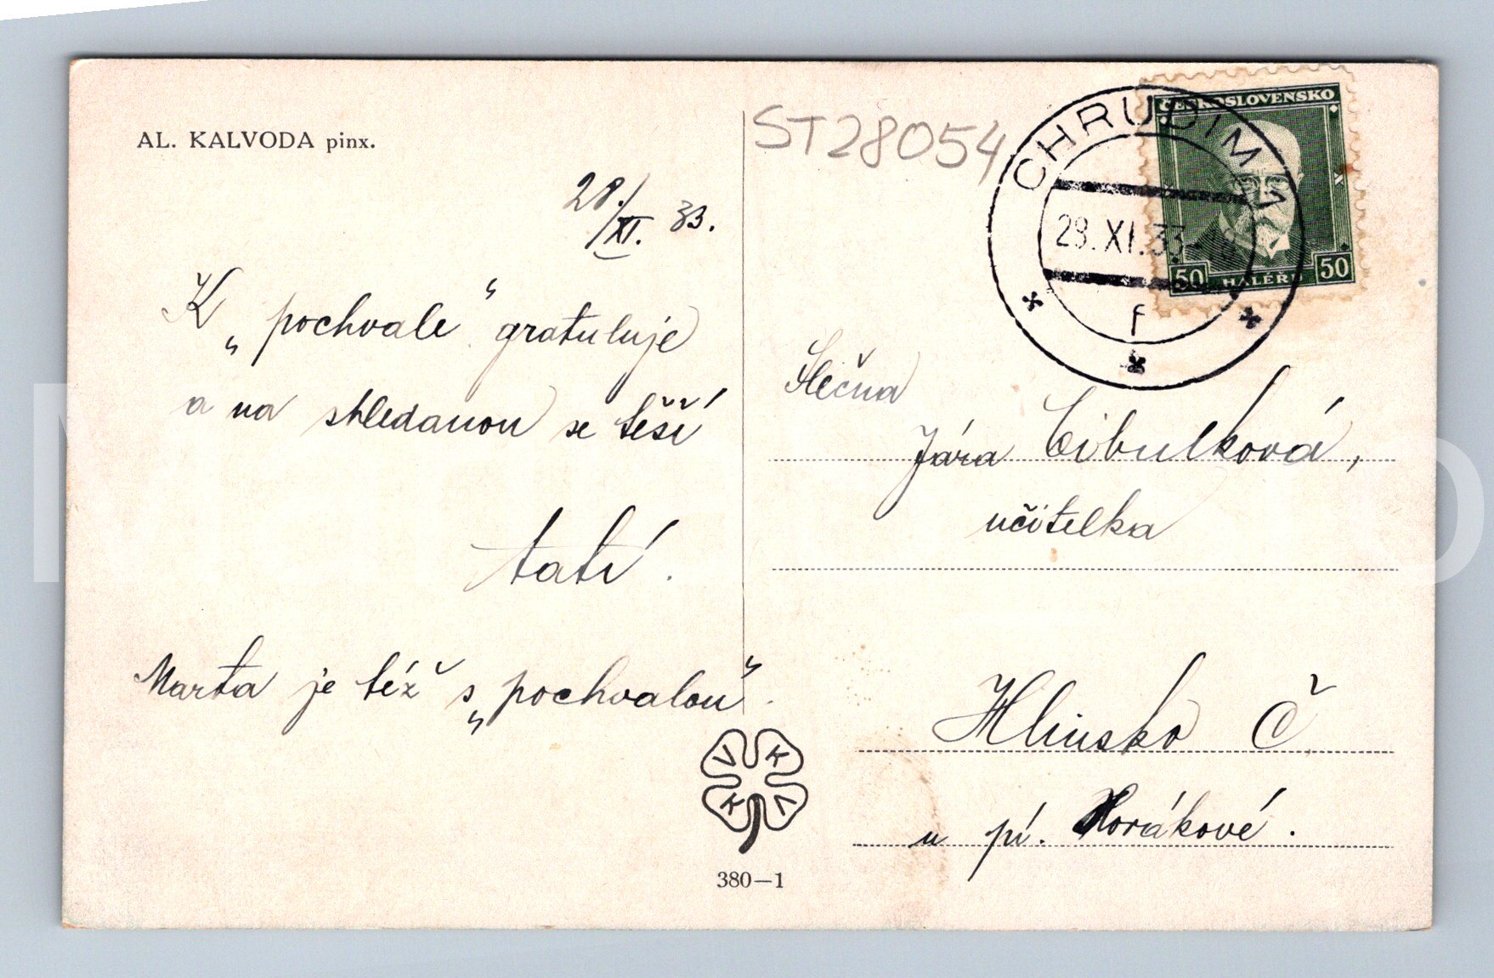 AL. KALVODA pinx.
28./XI. 33.
K „pochvale“ gratuluje
a na shledanou se těší
tatí.
Marta je též s „pochvalou“.
380—1
ST28054
CHRUDIM 1
28.XI.33
f
ČESKOSLOVENSKO
50 HALÉŘŮ 50
Slečna
Jára Cibulková,
učitelka
Hlinsko Č.
u pí. Horákové.
V K
K V